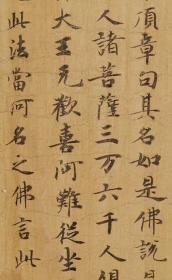 須章句其名如是佛說是
人諸菩薩三万六千人得
大王元歡喜阿難從坐
此法當何名之佛言此